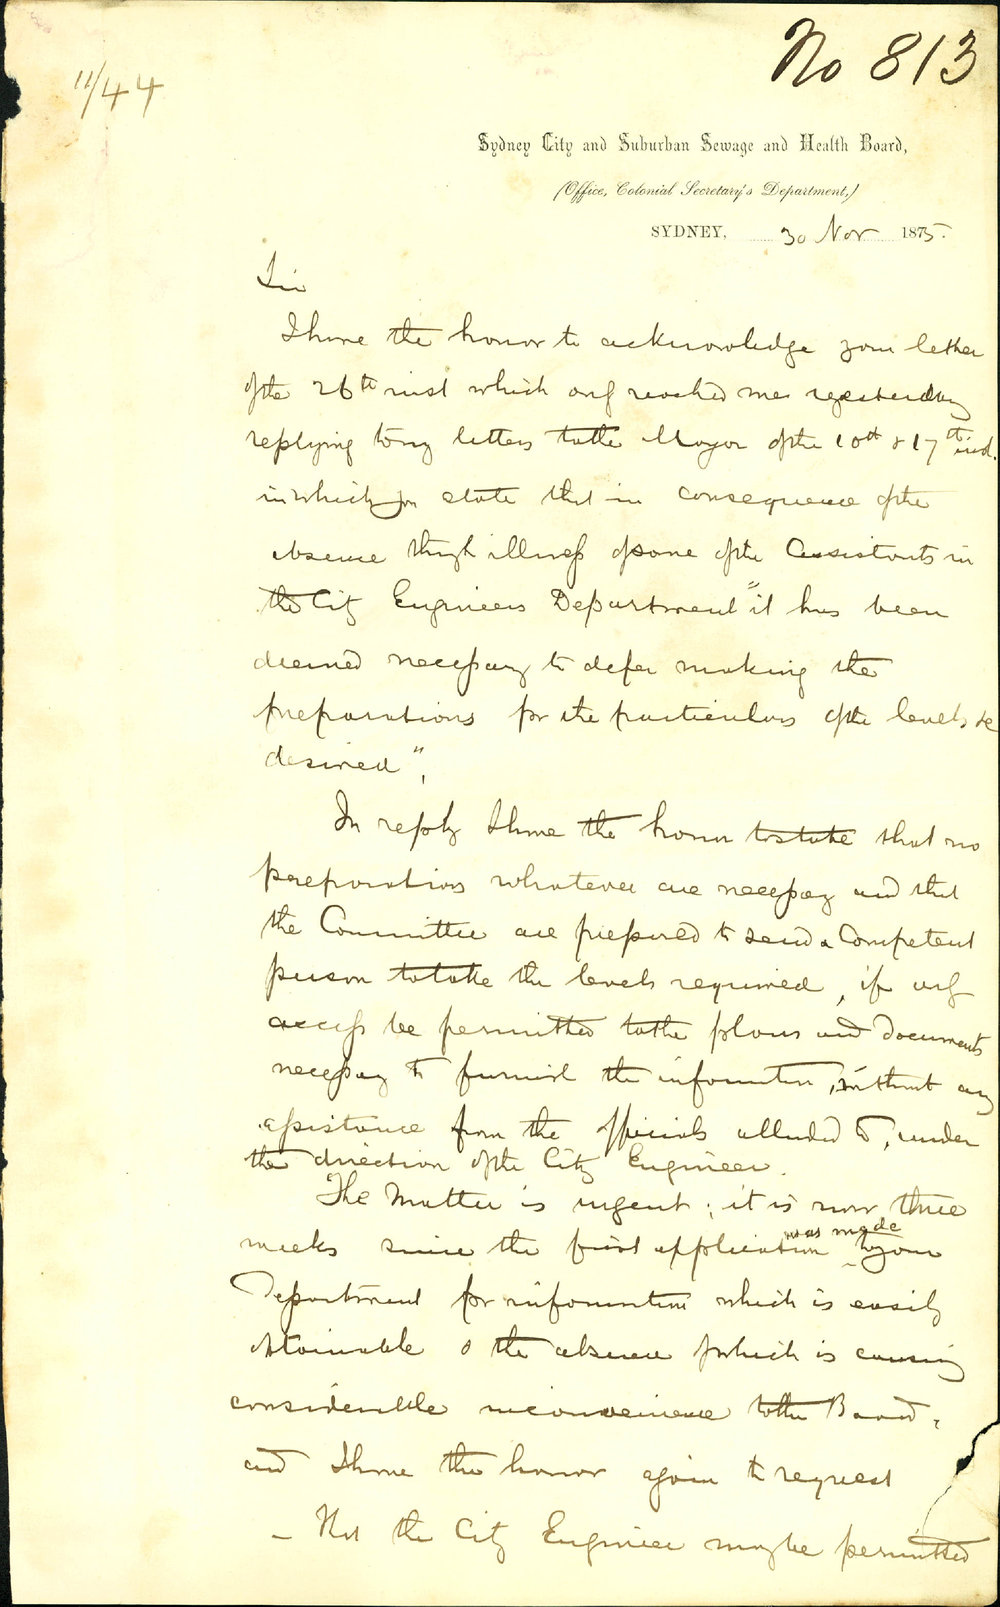 No 813
11/44
Sydney City and Suburban Sewage and Health Board,
(Office, Colonial Secretary's Department,)
SYDNEY, 30 Nov 1875.
Sir
I have the honor to acknowledge your letter
of the 26th inst which only reached me yesterday
replying to my letters to the Mayor of the 10th & 17th inst.
in which you state that in consequence of the
absence through illness of some of the Assistants in
the City Engineers Department "it has been
deemed necessary to defer making the
preparations for the particulars of the levels &c
desired",
In reply I have the honor to state that no
preparations whatever are necessary and that
the Committee are prepared to send a Competent
person to take the levels required, if only
access be permitted to the plans and documents
necessary to furnish the information, without any
assistance from the officials alluded to, under
the direction of the City Engineer.
The Matter is urgent; it is now three
weeks since the first application was made to your
Department for information which is easily
obtainable & the absence of which is causing
considerable inconvenience to the Board,
and I have the honor again to request
- that the City Engineer may be permitted